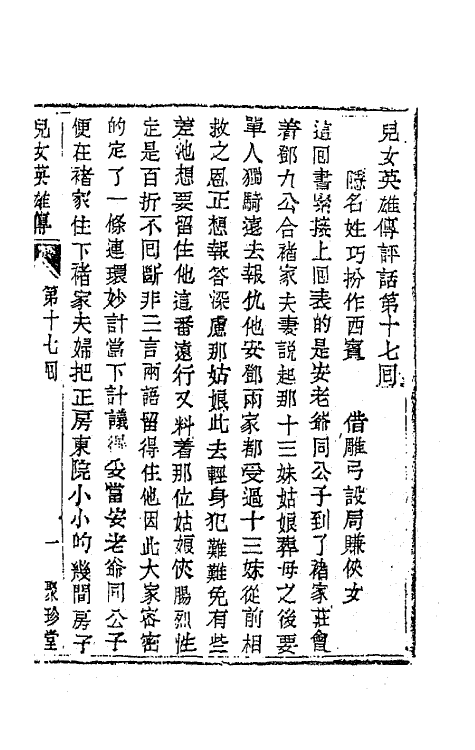 兒女英雄傳評話第十七回
隱名姓巧扮作西賓　借雕弓設局賺俠女
這回書緊接上回表的是安老爺同公子到了褚家莊會
著鄧九公合褚家夫妻説起那十三妹姑娘葬母之後要
單人獨騎遠去報仇他安鄧兩家都受過十三妹從前相
救之恩正想報答深慮那姑娘此去輕身犯難難免有些
差池想要留住他這番遠行又料着那位姑娘俠腸烈性
定是百折不囘斷非三言兩語留得住他因此大家密密
的定了一條連環妙計當下計議得妥當安老爺同公子
便在褚家住下褚家夫婦把正房東院小小的幾間房子
兒女英雄傳　第十七囘　一　聚珍堂